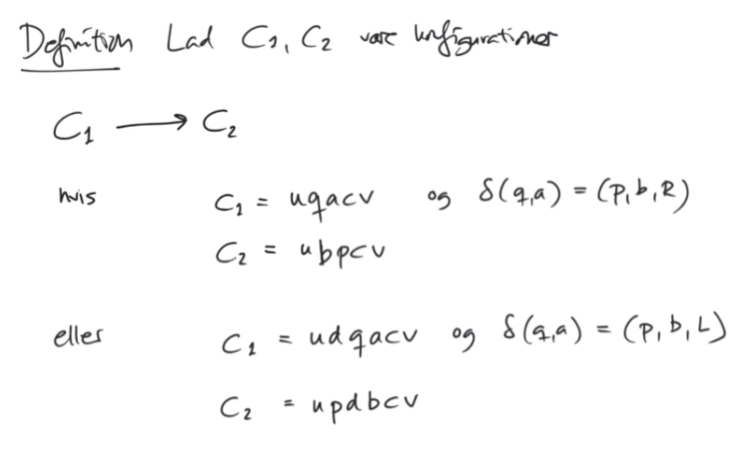 Definition Lad C₁, C₂ være konfigurationer
C₁ ⟶ C₂
hvis C₁ = uqacv og δ(q,a) = (p,b,R)
C₂ = ubpcv
elles C₁ = udqacv og δ(q,a) = (p,b,L)
C₂ = updbcv